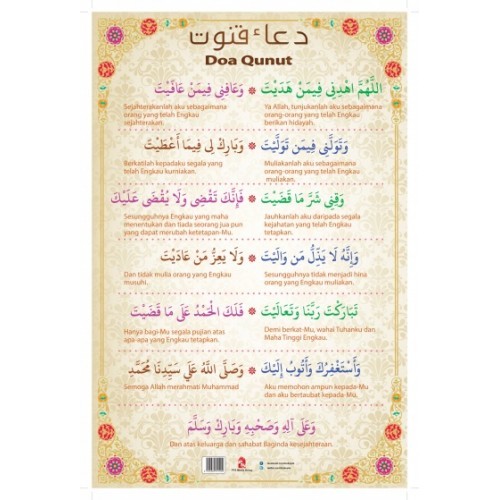 دعاء قنوت
Doa Qunut
اللَّهُمَّ اهْدِنِي فِيمَنْ هَدَيْتَ * وَعَافِنِي فِيمَنْ عَافَيْتَ
Ya Allah, tunjukanlah aku sebagaimana
orang-orang yang telah Engkau
berikan hidayah.
Sejahterakanlah aku sebagaimana
orang yang telah Engkau
sejahterakan.
وَتَوَلَّنِي فِيمَن تَوَلَّيْتَ * وَبَارِكْ لِي فِيمَا أَعْطَيْتَ
Muliakanlah aku sebagaimana
orang-orang yang telah Engkau
muliakan.
Berkatilah kepadaku segala yang
telah Engkau kurniakan.
وَقِنِي شَرَّ مَا قَضَيْتَ * فَإِنَّكَ تَقْضِي وَلَا يُقْضَى عَلَيْكَ
Jauhkanlah aku daripada segala
kejahatan yang telah Engkau
tetapkan.
Sesungguhnya Engkau yang maha
menentukan dan tiada seorang jua pun
yang dapat merubah ketetapan-Mu.
وَإِنَّهُ لَا يَذِلُّ مَن وَالَيْتَ * وَلَا يَعِزُّ مَنْ عَادَيْتَ
Sesungguhnya tidak menjadi hina
orang yang Engkau muliakan.
Dan tidak mulia orang yang Engkau
musuhi.
تَبَارَكْتَ رَبَّنَا وَتَعَالَيْتَ * فَلَكَ الْحَمْدُ عَلَى مَا قَضَيْتَ
Demi berkat-Mu, wahai Tuhanku dan
Maha Tinggi Engkau.
Hanya bagi-Mu segala pujian atas
apa-apa yang Engkau tetapkan.
وَأَسْتَغْفِرُكَ وَأَتُوبُ إِلَيْكَ * وَصَلَّى اللَّهُ عَلَي سَيِّدِنَا مُحَمَّدٍ
Aku memohon ampun kepada-Mu
dan aku bertaubat kepada-Mu.
Semoga Allah merahmati Muhammad
وَعَلَى آلِهِ وَصَحْبِهِ وَبَارِكْ وَسَلَّمَ
Dan atas keluarga dan sahabat Baginda kesejahteraan.